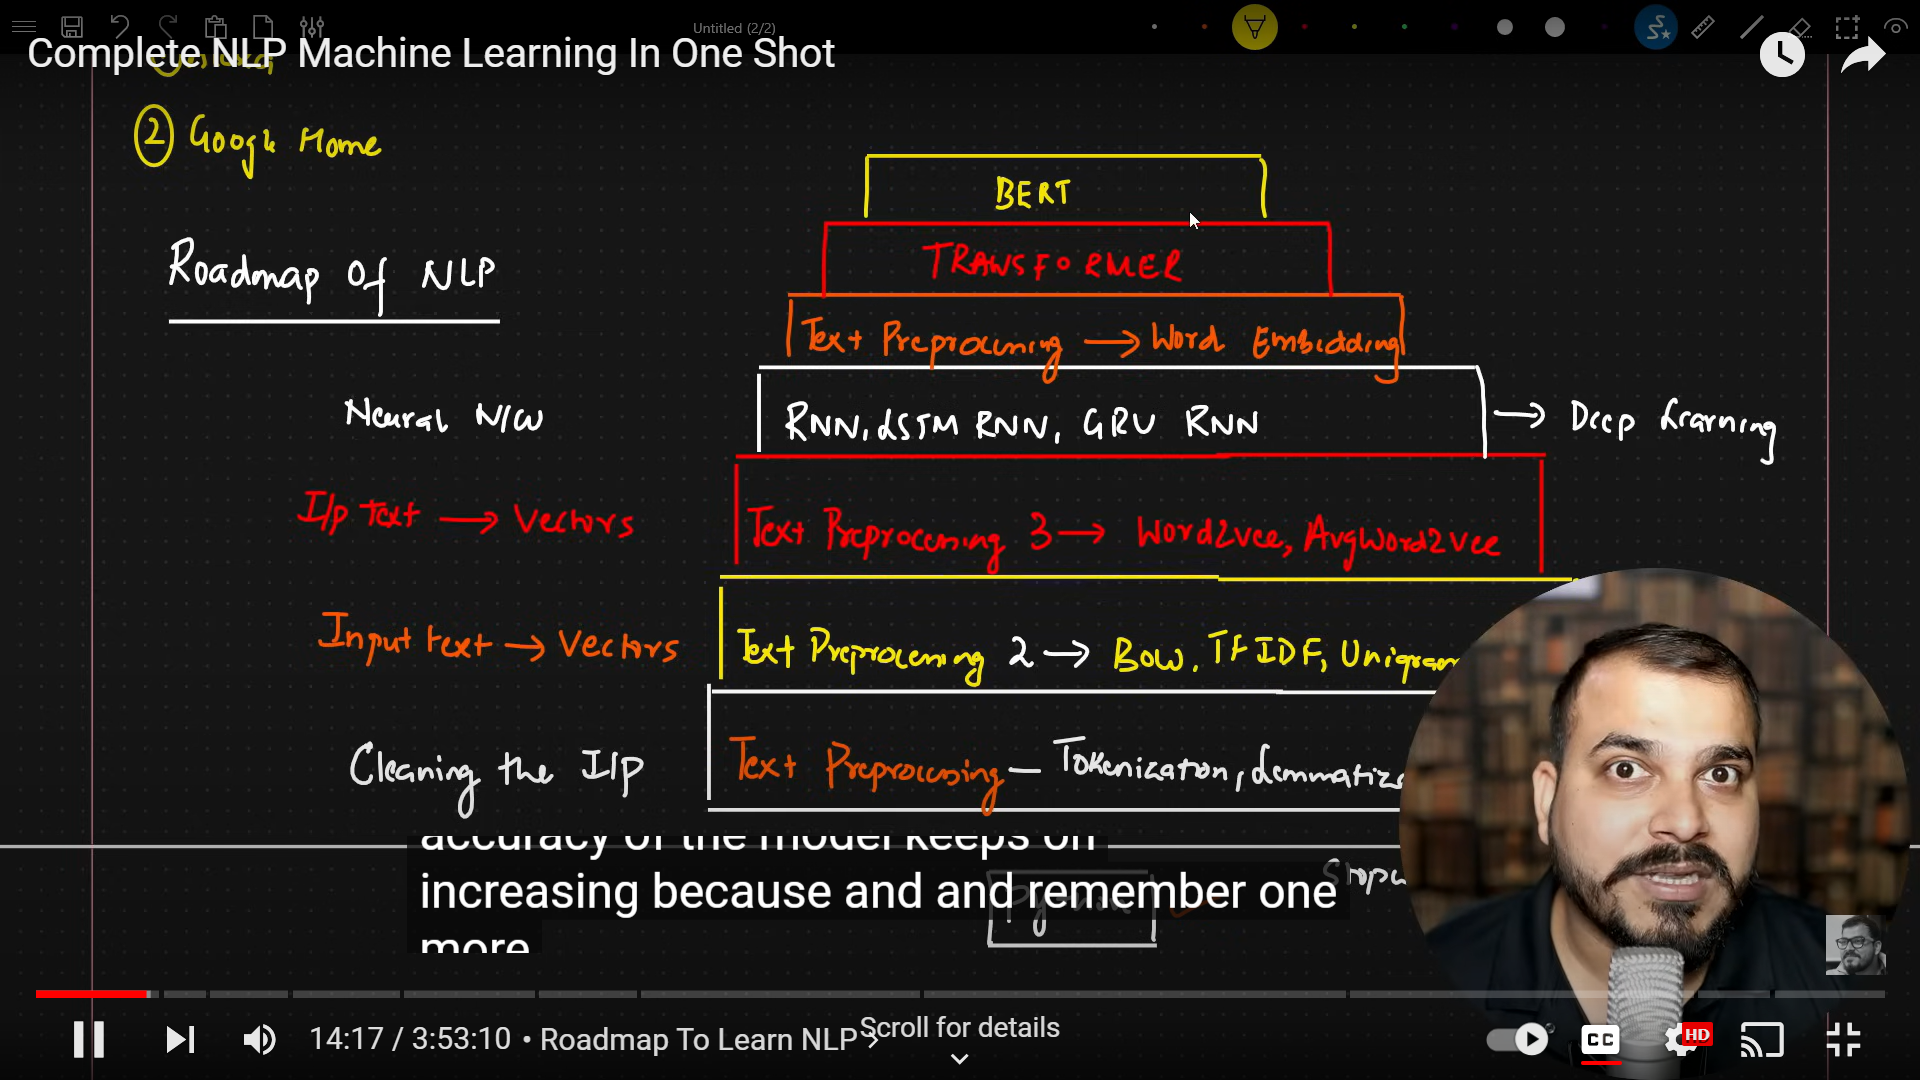 Untitled (2/2)
Complete NLP Machine Learning In One Shot
2 Google Home
BERT
TRANSFORMER
Roadmap Of NLP
Text Preprocessing → Word Embedding
Neural N/W
RNN, LSTM RNN, GRU RNN → Deep Learning
I/p Text → Vectors
Text Preprocessing 3 → Word2vec, AvgWord2vec
Input text → Vectors
Text Preprocessing 2 → BOW, TFIDF, Unigram
Cleaning the I/p
Text Preprocessing — Tokenization, Lemmatiz
accuracy of the model keeps on
increasing because and and remember one
more
Python
Stopw
14:17 / 3:53:10 • Roadmap To Learn NLP >
Scroll for details
CC
HD